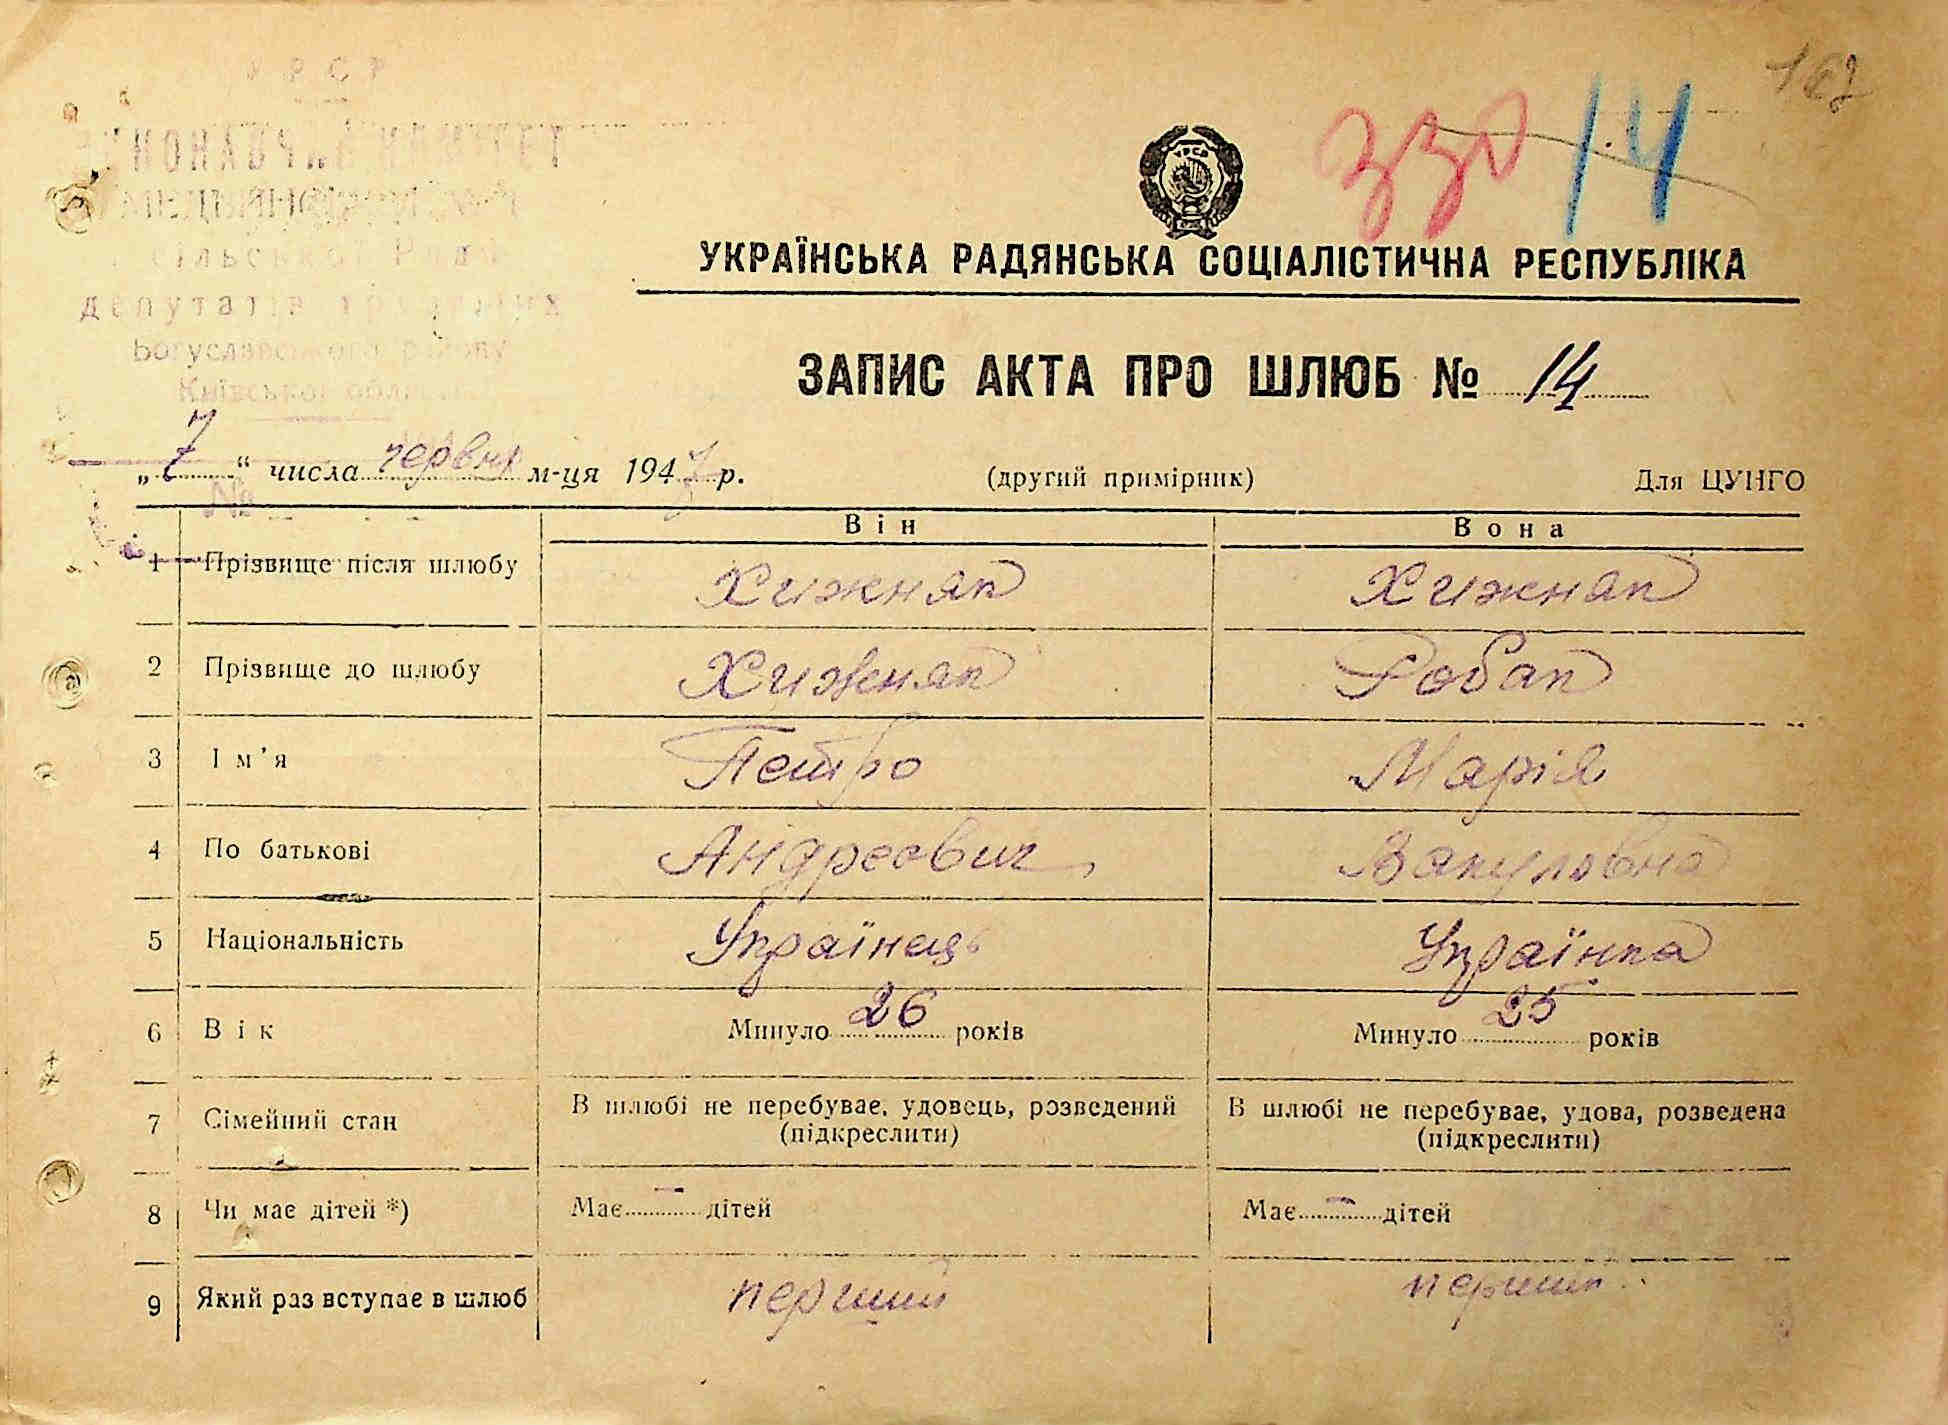 УРСР
167
330 14
ВИКОНАВЧИЙ КОМІТЕТ
УРСР
сільської Ради
депутатів трудящих
Богуславського району
Київської області
№
УКРАЇНСЬКА РАДЯНСЬКА СОЦІАЛІСТИЧНА РЕСПУБЛІКА
ЗАПИС АКТА ПРО ШЛЮБ № 14
„7“ числа червня м-ця 1947 р. (другий примірник) Для ЦУНГО
Він Вона
1 Прізвище після шлюбу Хижняк Хижняк
2 Прізвище до шлюбу Хижняк Робак
3 Ім'я Петро Марія
4 По батькові Андреевич Вакуловна
5 Національність Українець Українка
6 Вік Минуло 26 років Минуло 25 років
7 Сімейний стан В шлюбі не перебуває, удовець, розведений В шлюбі не перебуває, удова, розведена
(підкреслити) (підкреслити)
8 Чи має дітей *) Має — дітей Має — дітей
9 Який раз вступає в шлюб перший перший